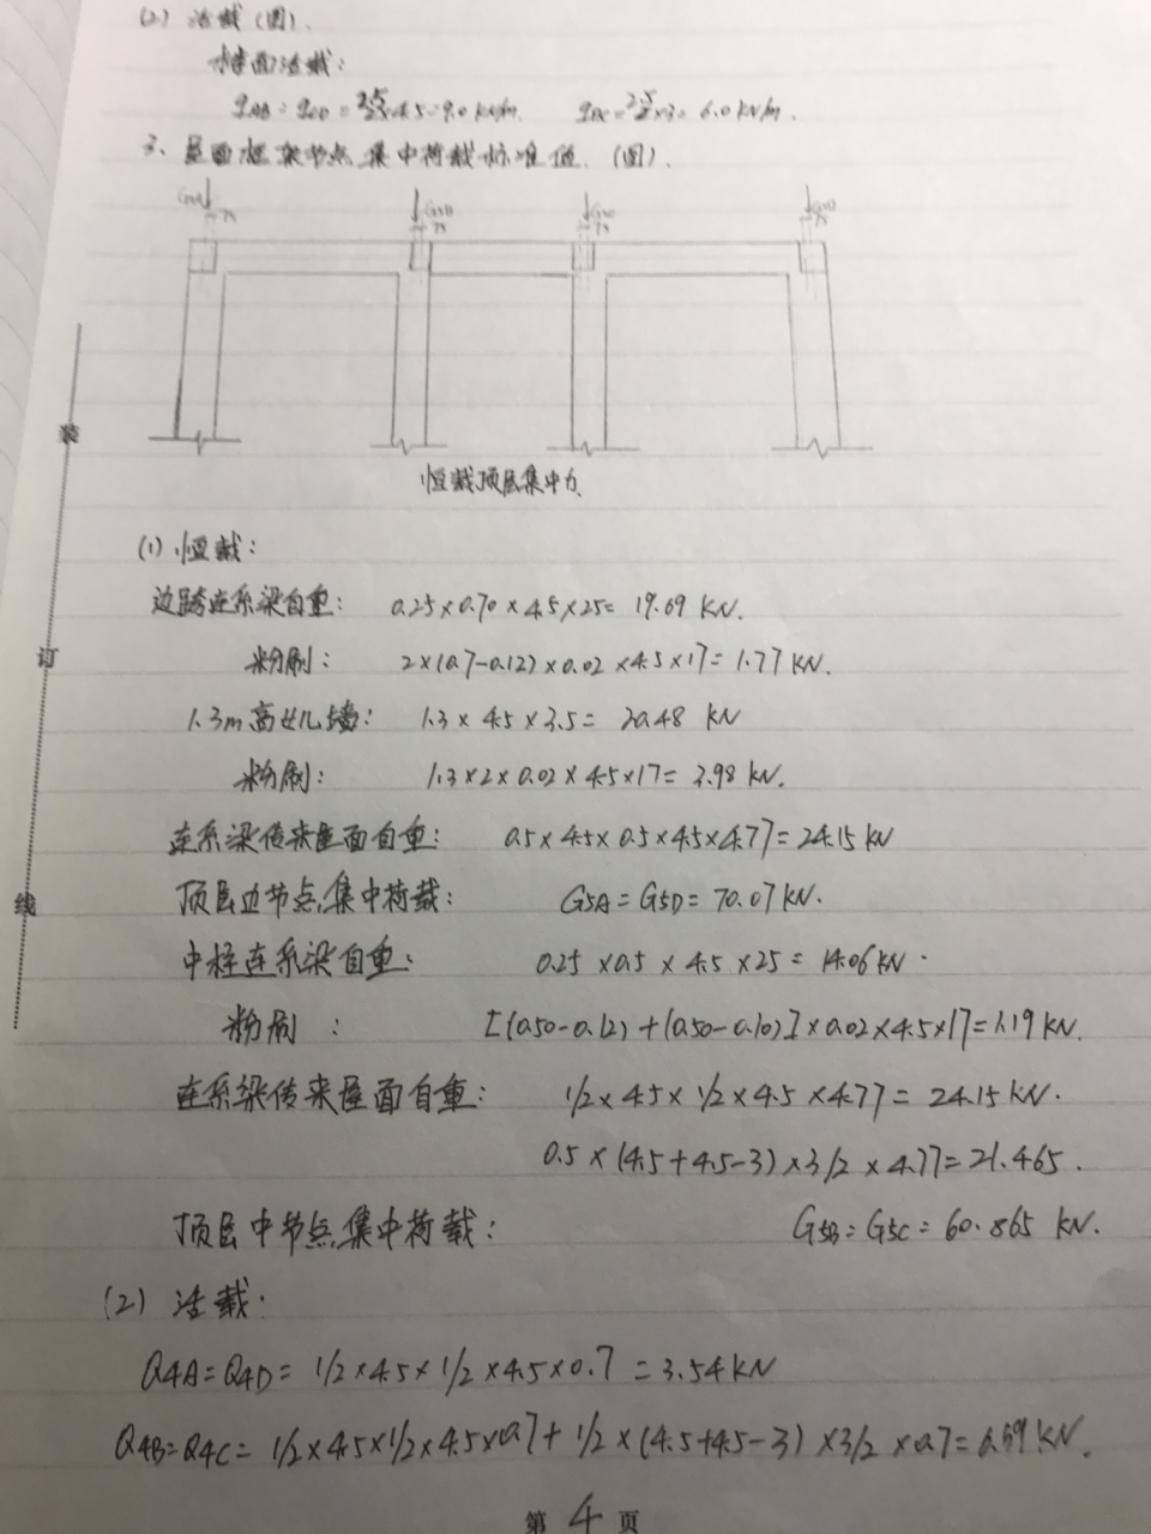 (2) 活载(图).
楼面活载:
qAB=qCD=2.5/2×4.5=9.0 kN/m. qBC=2.5/2×3=6.0 kN/m.
3、屋面框架节点集中荷载标准值.(图).
G5A G5B G5C G5D
75 75 75 75
恒载顶层集中力.
(1) 恒载:
边跨连系梁自重: 0.25×0.70×4.5×25=19.69 KN.
粉刷: 2×(0.7-0.12)×0.02×4.5×17=1.77 KN.
1.3m高女儿墙: 1.3×4.5×3.5=20.48 KN
粉刷: 1.3×2×0.02×4.5×17=3.98 KN.
连系梁传来屋面自重: 0.5×4.5×0.5×4.5×4.77=24.15 KN
顶层边节点集中荷载: G5A=G5D=70.07 KN.
中柱连系梁自重: 0.25×0.5×4.5×25=14.06 KN.
粉刷: [(0.50-0.12)+(0.50-0.10)]×0.02×4.5×17=1.19 KN.
连系梁传来屋面自重: 1/2×4.5×1/2×4.5×4.77=24.15 KN.
0.5×(4.5+4.5-3)×3/2×4.77=21.465.
顶层中节点集中荷载: G5B=G5C=60.865 KN.
(2) 活载:
Q4A=Q4D=1/2×4.5×1/2×4.5×0.7=3.54 KN
Q4B=Q4C=1/2×4.5×1/2×4.5×0.7+1/2×(4.5+4.5-3)×3/2×0.7=6.69 KN.
第 4 页
装
订
线